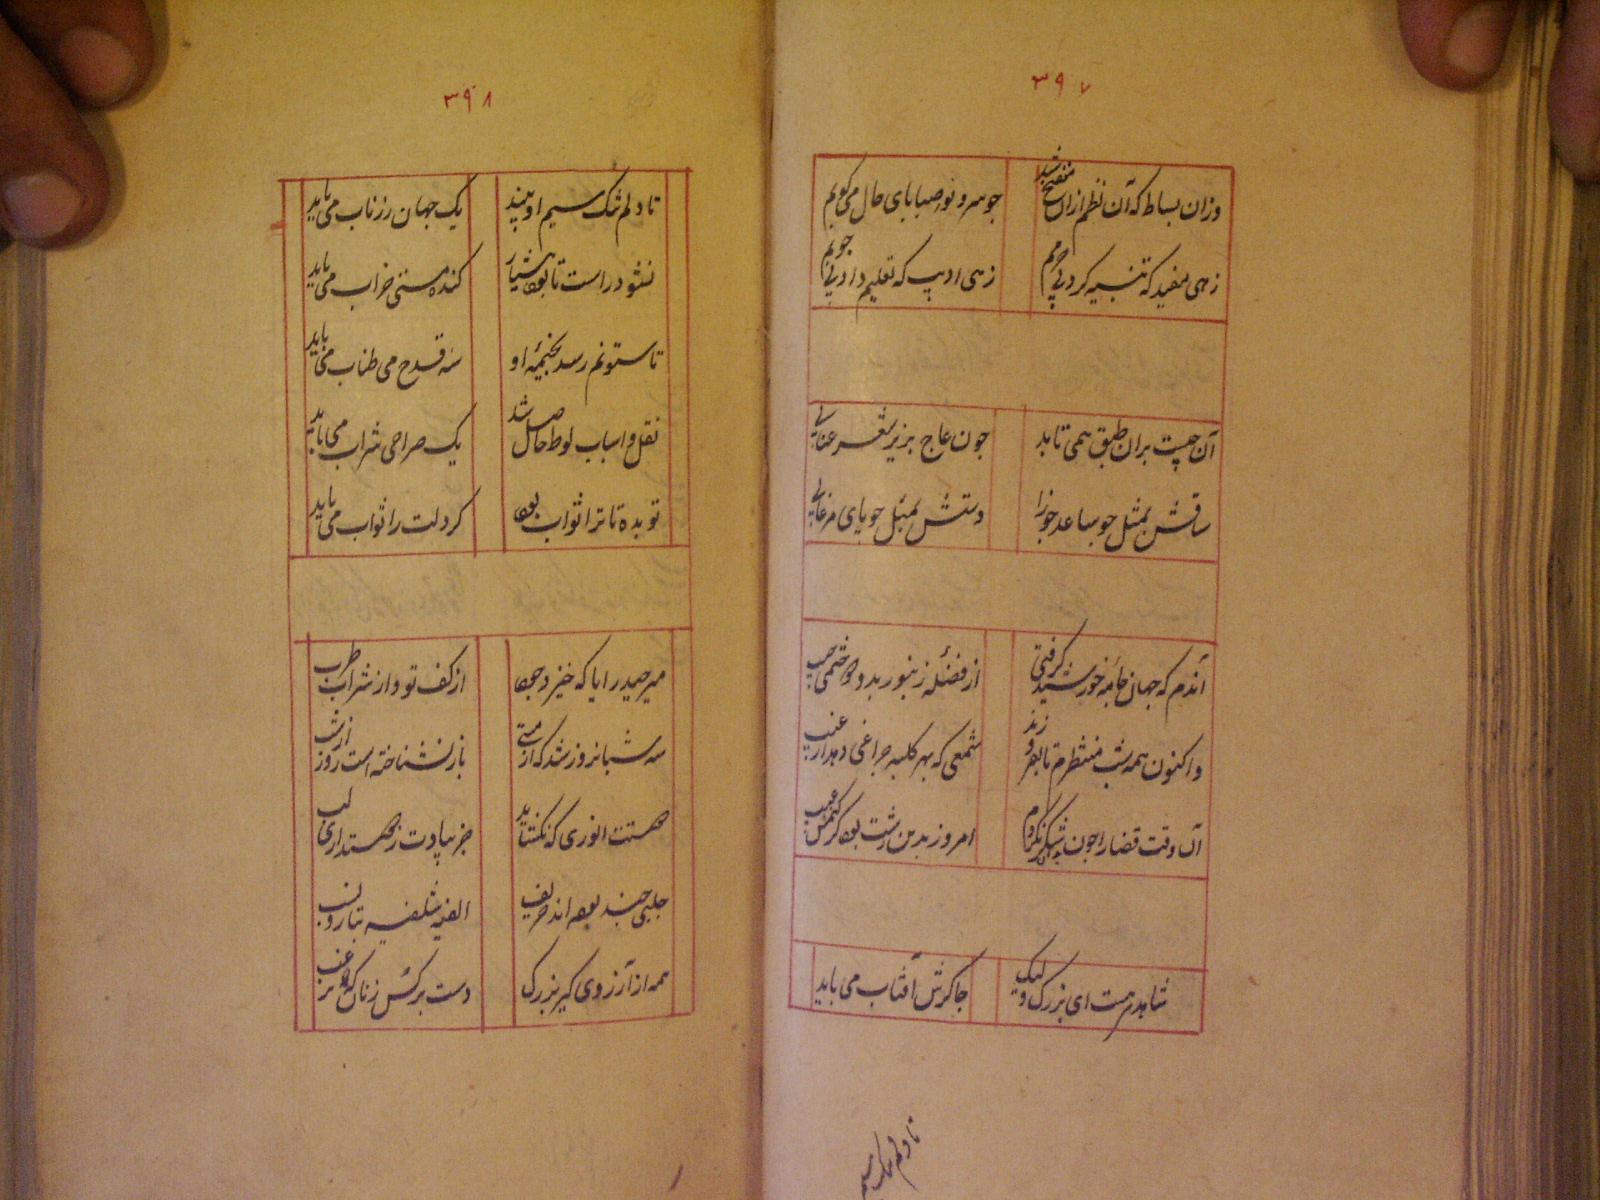 ۳۹۷
وزان بساط که آن نظم ازان منقح شد جو سرو نو صبا بای حال می کوبم
زهی مفید که تنبیه کرد بی جرمم زهی ادیب که تعلیم داد بی جوبم
آن چیست بران طبق همی تابد جون عاج بزیر شعر عنابی
ساقش بمثل جو ساعد جوزا دستش بمثل جو بای مرغابی
آندم که جهان خورشید گرفتی از فضله زنبور بدو
واکنون همه شب منتظرم تا بفروزند شمعی که بهر کلبه جراغی دهد از
آن وقت قضا را جون امروز بدین زشت بود
شاهدم هست ای بزرگ ولیک جا کرش آفتاب می باید
تا دلم تنک سیم
۳۹۸
تا دلم تنک سیم او بیند یک جهان زر ناب می باید
نشود راست تا بود هشیار کنده مستی خراب می باید
تا ستونم رسد بخیمه او سه قدح می طناب می باید
نقل و اسباب لوط حاصل شد یک صراحی شراب می باید
تو بده تا ترا ثواب بود کر دلت را ثواب می باید
میر حیدر ایا که خیزد جود از کف تو واز شراب طرب
سه شبانروز شد که از مستی باز نشناخته است روز از شب
هست انوری که نکشاید جز بیادت
جلبی جند بوده اند حریف الفیه شلفیه
همه از آرزوی کیر بزرک دست بر کس زنان که